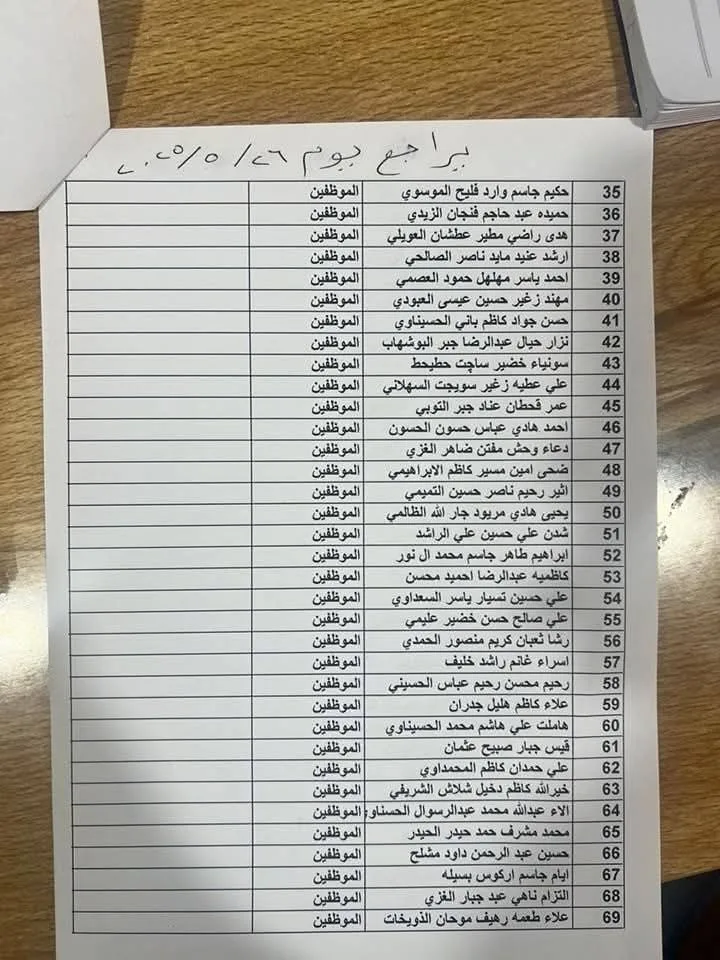 يراجع يوم ٢٠٢٥/٥/٢٦
35 حكيم جاسم وارد فليح الموسوي الموظفين
36 حميده عبد حاجم فنجان الزيدي الموظفين
37 هدى راضي مطير عطشان العويلي الموظفين
38 ارشد عنيد مايد ناصر الصالحي الموظفين
39 احمد ياسر مهلهل حمود العصمي الموظفين
40 مهند زغير حسين عيسى العبودي الموظفين
41 حسن جواد كاظم باني الحسيناوي الموظفين
42 نزار حيال عبدالرضا جبر البوشهاب الموظفين
43 سونياء خضير ساچت حطيحط الموظفين
44 علي عطيه زغير سويجت السهلاني الموظفين
45 عمر قحطان عناد جبر التوبي الموظفين
46 احمد هادي عباس حسون الحسون الموظفين
47 دعاء وحش مفتن ضاهر الغزي الموظفين
48 ضحى امين مسير كاظم الابراهيمي الموظفين
49 اثير رحيم ناصر حسين التميمي الموظفين
50 يحيى هادي مريود جار الله الظالمي الموظفين
51 شدن علي حسين علي الراشد الموظفين
52 ابراهيم طاهر جاسم محمد ال نور الموظفين
53 كاظميه عبدالرضا احميد محسن الموظفين
54 علي حسين تسيار ياسر السعداوي الموظفين
55 علي صالح حسن خضير عليمي الموظفين
56 رشا ثعبان كريم منصور الحمدي الموظفين
57 اسراء غانم راشد خليف الموظفين
58 رحيم محسن رحيم عباس الحسيني الموظفين
59 علاء كاظم هليل جدران الموظفين
60 هاملت علي هاشم محمد الحسيناوي الموظفين
61 قيس جبار صبيح عثمان الموظفين
62 علي حمدان كاظم المحمداوي الموظفين
63 خيرالله كاظم دخيل شلاش الشريفي الموظفين
64 الاء عبدالله محمد عبدالرسوال الحسناوي الموظفين
65 محمد مشرف حمد حيدر الحيدر الموظفين
66 حسين عبد الرحمن داود مشلح الموظفين
67 ايام جاسم اركوس بسيله الموظفين
68 التزام ناهي عبد جبار الغزي الموظفين
69 علاء طعمه رهيف موحان الذويخات الموظفين